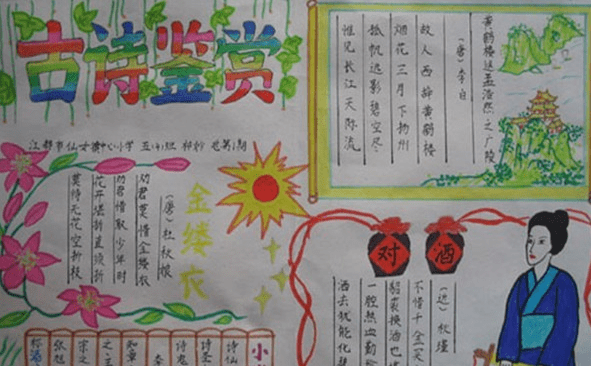 古诗鉴赏
江都市仙女镇中心小学 五(4)班
黄鹤楼送孟浩然之广陵
（唐）李白
故人西辞黄鹤楼
烟花三月下扬州
孤帆远影碧空尽
惟见长江天际流
金缕衣
（唐）杜秋娘
劝君莫惜金缕衣
劝君惜取少年时
花开堪折直须折
莫待无花空折枝
对酒
（近）秋瑾
不惜千金买
貂裘换酒也
一腔热血勤
洒去犹能化
小
诗仙
诗圣
诗鬼
知章
宗之
张旭